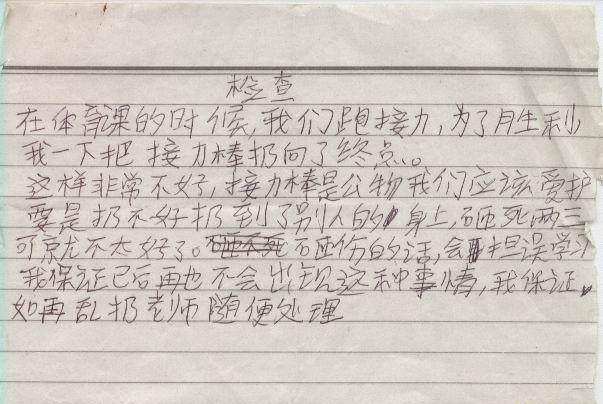 检查
在体育课的时候,我们跑接力,为了胜利
我一下把接力棒扔向了终点。
这样非常不好,接力棒是公物我们应该爱护
要是扔不好扔到了别人的身上,砸死两三
可就不太好了。砸不死砸伤的话,会担误学习
我保证已后再也不会出现这种事情,我保证
如再乱扔老师随便处理